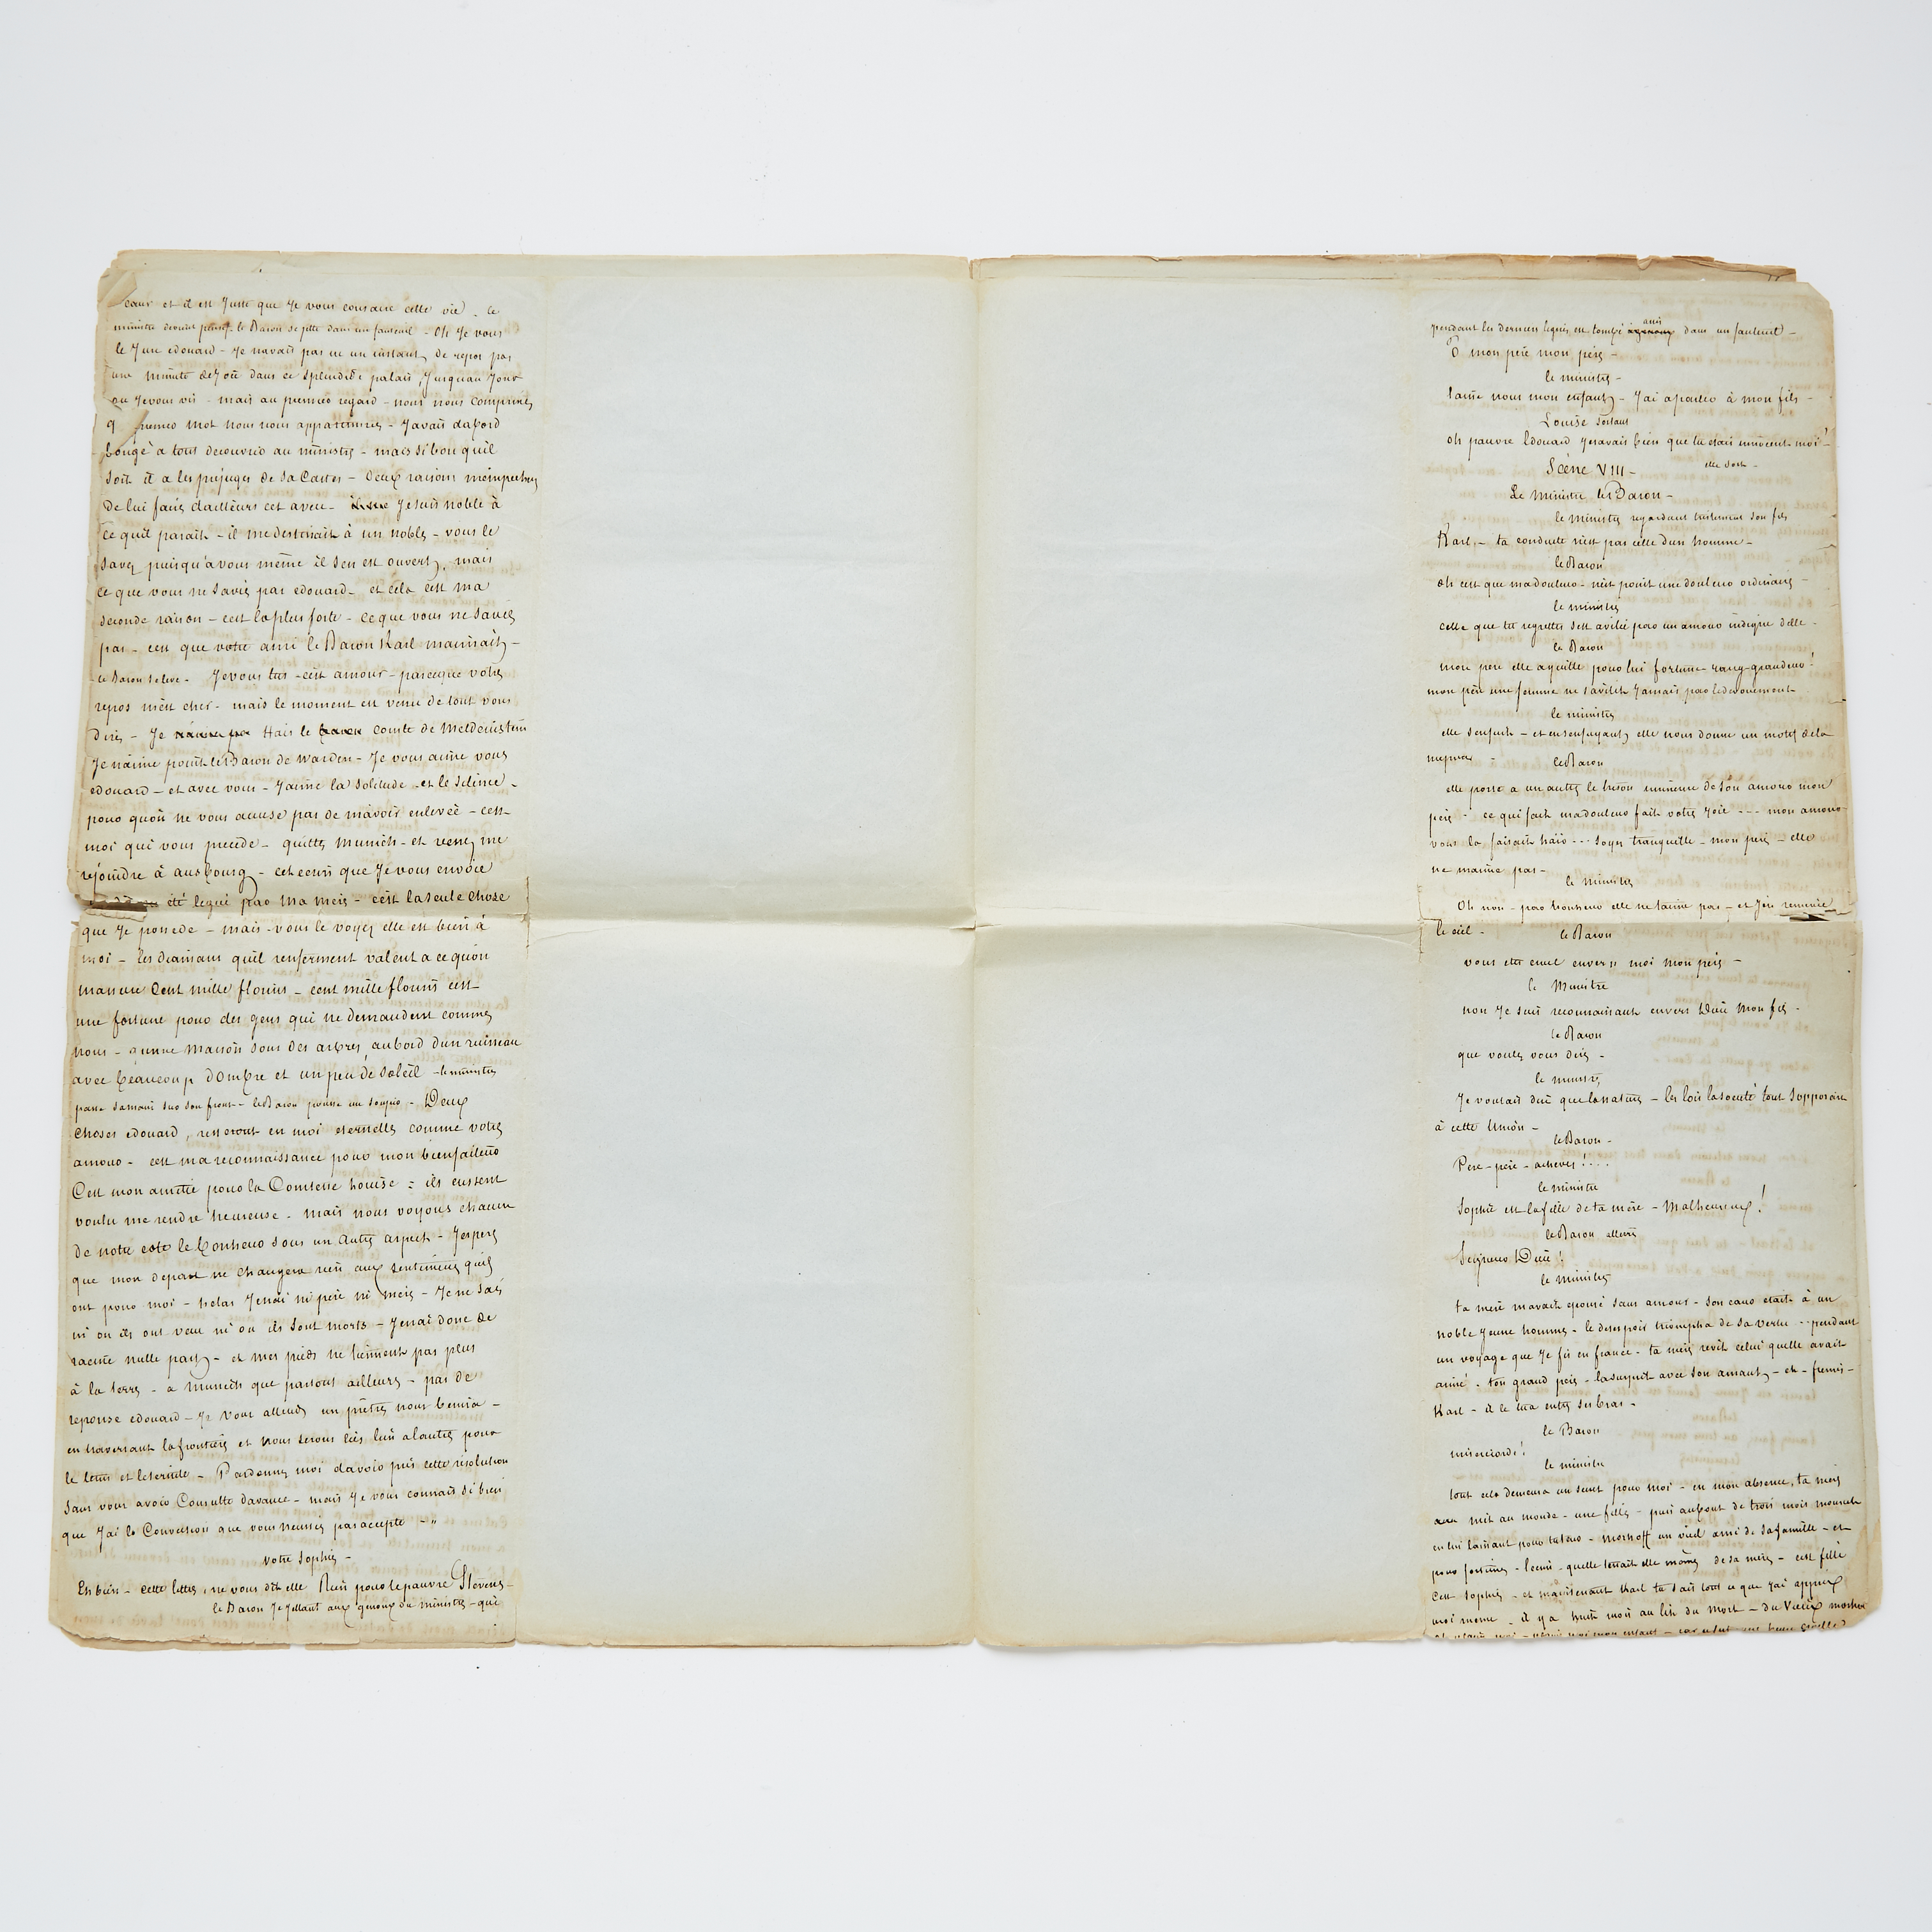 cœur et il est juste que je vous consacre cette vie - le
ministre devient pensif - le Baron se jette dans un fauteuil - Oh je vous
le jure edouard - je navais pas eu un instant de repos pas
une minute de joie dans ce splendide palais, jusquau jour
ou je vous vis - mais au premier regard - nous nous comprimes
premier mot nous nous appartinmes - javais dabord
songé à tout decouvrir au ministre - mais si bon quil
soit il a les prejuges de sa Caste - Deux raisons mempechent
de lui faire dailleurs cet aveu - je suis noble à
ce quil parait - il me destinait à un noble - vous le
savez puisqu'à vous même il sen est ouvert, mais
ce que vous ne savez pas edouard - et cela est ma
seconde raison - cest la plus forte - ce que vous ne savez
pas - cest que votre ami le Baron Karl maimait -
le Baron se leve - Je vous tus - cet amour - parceque votre
repos mest cher - mais le moment est venu de tout vous
dire - Je Hais le comte de Meldenstein
Je naime point le Baron de Warden - Je vous aime vous
edouard - et avec vous - Jaime la solitude et le silence -
pour quon ne vous accuse pas de mavoir enlevée - cest
moi qui vous precede - quittez Munich - et venez me
rejoindre à ausbourg - cet ecrin que Je vous envoie
été legué par ma mere - cest la seule chose
que Je possede - mais vous le voyez elle est bien à
moi - les diamans quil renferment valent a ce quon
massure Cent mille florins - cent mille florins cest
une fortune pour des gens qui ne demandent comme
nous - quune Maison sous des arbres, au bord dun ruisseau
avec beaucoup dOmbre et un peu de soleil - le ministre
passe sa main sur son front - le Baron pousse un soupir - Deux
choses edouard, resteront en moi eternelles comme votre
amour - cest ma reconnaissance pour mon bienfaiteur
Cest mon amitié pour la Comtesse Louise : ils eussent
voulu me rendre heureuse - mais nous voyons chacun
de notre coté le bonheur sous un autre aspect - Jespere
que mon depart ne changera rien aux sentimens quils
ont pour moi - helas Jenai ni pere ni mere - Je ne sais
ni ou ils ont vecu ni ou ils sont morts - Jenai donc de
racine nulle part - et mes pieds ne tiennent pas plus
à la terre - a Munich que partout ailleurs - pas de
reponse edouard - Je vous attends un prêtre nous benira -
en traversant la frontiere et nous serons liés lun alautre pour
le tems et leternité - Pardonnez moi davoir pris cette resolution
sans vous avoir Consulté davance - mais Je vous connais si bien
que Jai la Conviction que vous neussiez pas accepté - "
votre Sophie -
Eh bien - cette lettre, ne vous dit elle Rien pour le pauvre Stevens -
le Baron se jettant aux genoux du ministre - qui
pendant les dernieres lignes est tombé assis dans un fauteuil -
O mon pere mon pere -
le ministre -
laisse nous mon enfant - Jai a parler à mon fils -
Louise sortant
oh pauvre Edouard je savais bien que tu etais innocent - moi !
elle sort -
Scène VIII -
Le Ministre le Baron -
le ministre regardant tristement son fils
Karl - ta conduite nest pas celle dun homme -
le Baron
oh cest que ma douleur - nest point une douleur ordinaire -
le ministre
celle que tu regrettes sest avilie par un amour indigne delle -
le Baron
mon pere elle a quitté pour lui fortune - rang - grandeur !
mon pere une femme ne savilit jamais par le devouement -
le ministre
elle senfuit - et en senfuyant elle nous donne un motif de la
mepriser -
le Baron
elle porte a un autre le tresor immense de son amour mon
pere - ce qui fait ma douleur fait votre joie --- mon amour
vous la faisait haïr --- soyez tranquille - mon pere - elle
ne maime pas -
le ministre
Oh non - par bonheur elle ne taime pas - et jen remercie
le ciel -
le Baron
vous etes cruel envers moi mon pere -
le Ministre
non Je suis reconnaissant envers Dieu mon fils -
le Baron
que voulez vous dire -
le ministre
Je voulais dire que la nature - les lois la societé tout sopposait
à cette Union -
le Baron -
Pere - pere - achevez !....
le ministre
Sophie est la fille de ta mère - Malheureux !
le Baron atterré
Seigneur Dieu !
le ministre
ta mere mavait epousé sans amour - son cœur etait à un
noble jeune homme - le desespoir triompha de sa vertu -- pendant
un voyage que Je fis en france - ta mere revit celui quelle avait
aimé - ton grand pere - la surprit avec son amant - et - fremis -
Karl - il le tua entre ses bras -
le Baron
misericorde !
le ministre
tout cela demeura un secret pour moi - en mon absence, ta mere
mit au monde - une fille - puis au bout de trois mois mourut
en lui laissant pour tuteur - Morhoff un vieil ami de sa famille - et
pour fortune - lecrin - quelle tenait elle même de sa mere - cette fille
Cest Sophie - et maintenant Karl tu sais tout ce que jai appris
moi meme - il y a huit mois au lit de Mort - du Vieux Morhoff